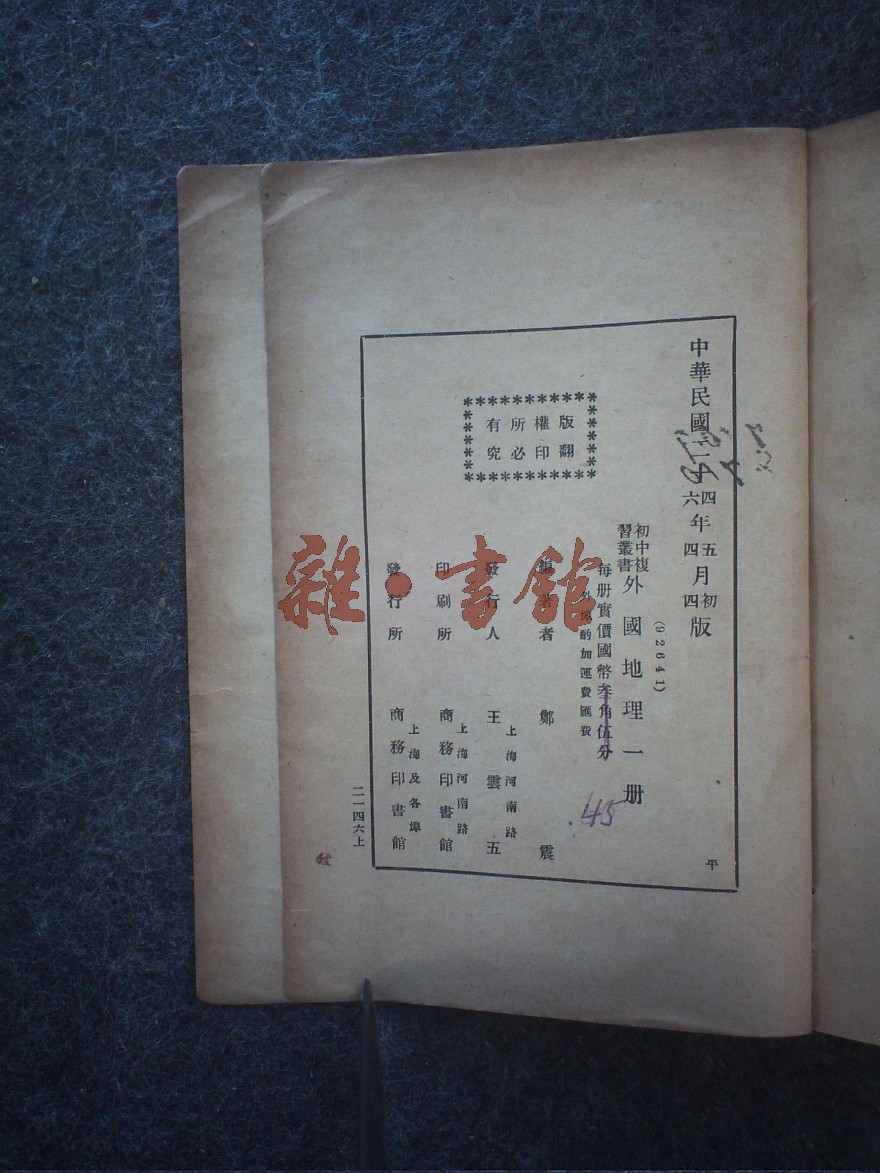 中華民國二十四六年五四月初四版
(92641)
初中複習叢書外國地理一册
每册實價國幣叁角伍分
外埠酌加運費匯費
.45
版權所有
翻印必究
編著者 鄭震
發行人 王雲五
上海河南路
印刷所 商務印書館
上海河南路
發行所 商務印書館
上海及各埠
平
二一四六上
雜·書館